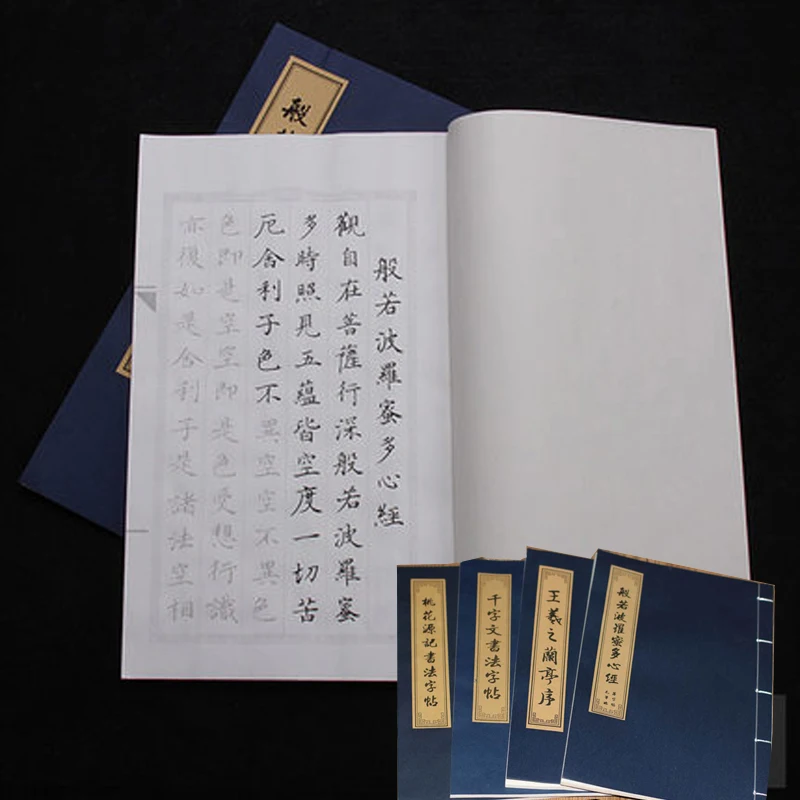 般若波羅蜜多心經
觀自在菩薩行深般若波羅蜜
多時照見五蘊皆空度一切苦
厄舍利子色不異空空不異色
色即是空空即是色受想行識
亦復如是舍利子是諸法空相
般
桃花源記书法字帖
千字文书法字帖
王羲之蘭亭序
般若波羅蜜多心經